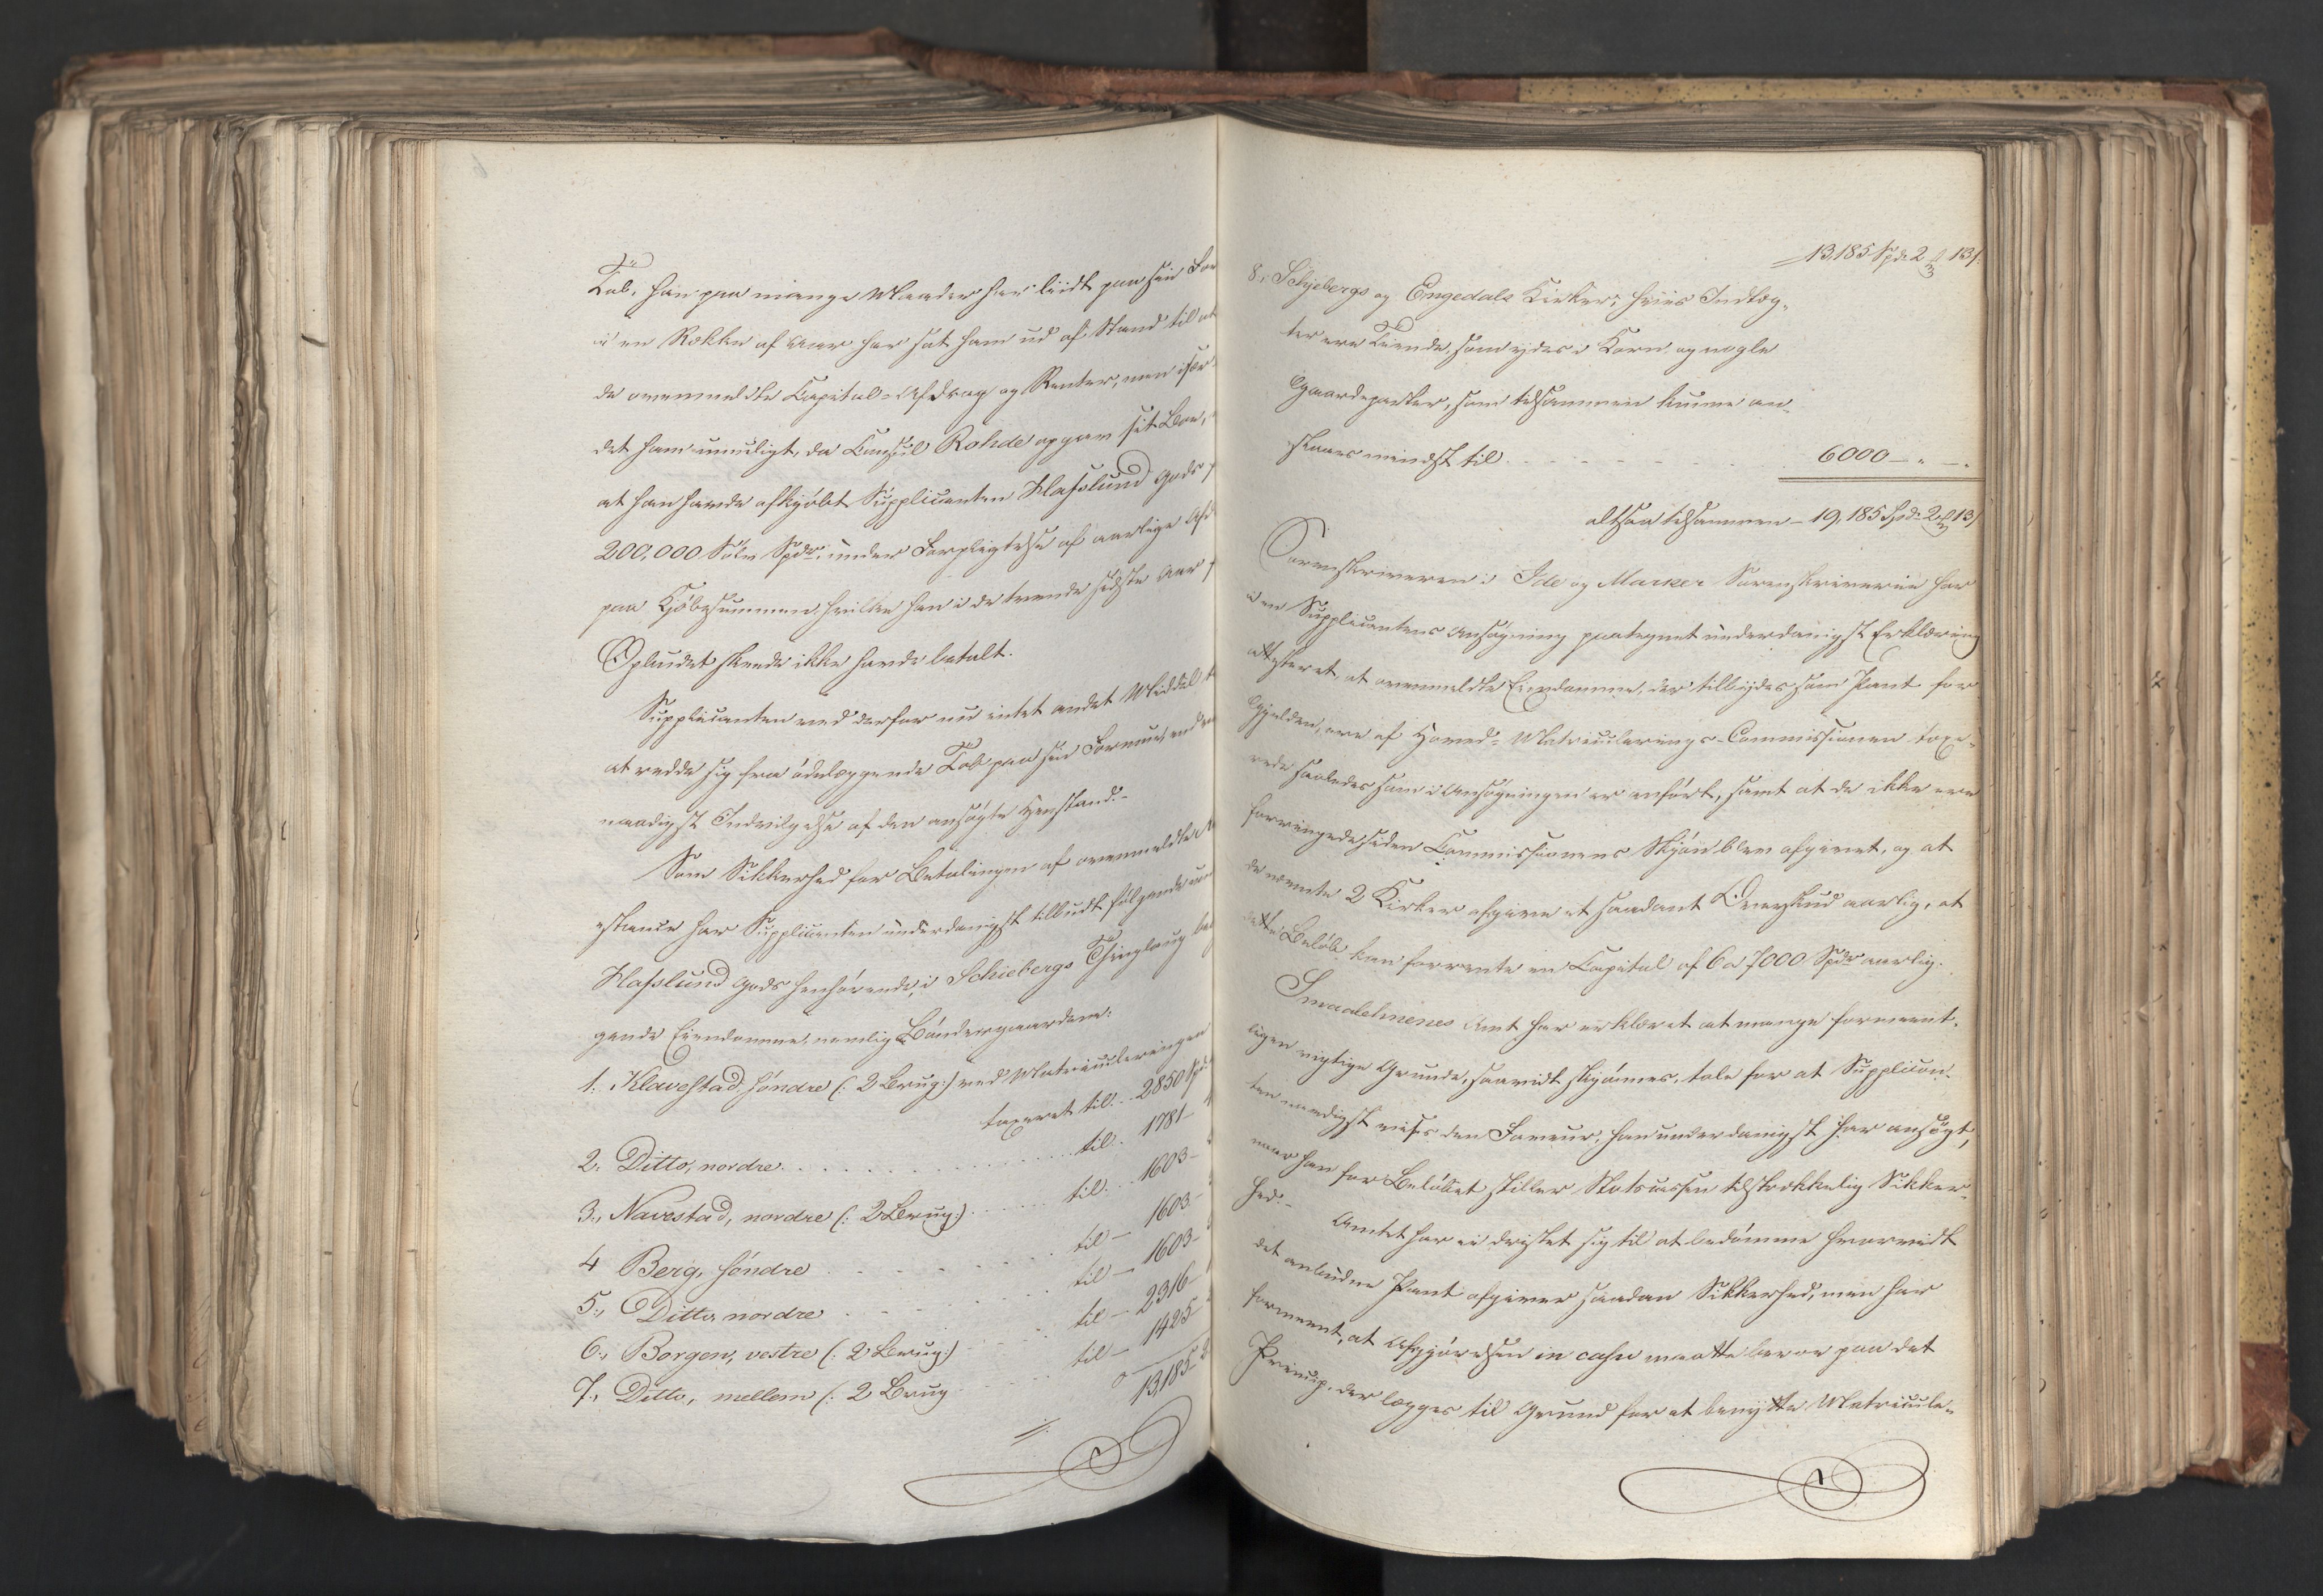 Tab, han paa mange Maader har liidt paa sin For
i en Række af Aar har sat ham ud af Stand til at
de ovenmeldte Capital-Afdrag og Renter, men især
det ham umuligt, da Consul Rohde opgav sit Boe,
at han havde afkjøbt Supplicanten Hafslund Gods
200,000 Sølv Spdr. under Forpligtelse af aarlige Afd
paa Kjøbesummen, hvilke han i de tvende sidste Aar
Opbudet skeede ikke havde betalt.
Supplicanten veed derfor nu intet andet Middel
at redde sig fra ødelæggende Tab paa sin Formue, end
naadigst Indvilgelse af den ansøgte Henstand.-
Som Sikkerhed for Betalingen af ovenmeldte
estance har Supplicanten underdanigst tilbudt følgende
Hafslund Gods henhørende, i Schiebergs Thinglaug be
gende Eiendomme, nemlig Bøndergaardene:
1. Klavestad, søndre (: 2 Brug:) ved Matriculeringen
taxeret til .. 2850 Spd
2. Ditto, nordre. . . . . til . 1781 -
3., Navestad, nordre (: 2 Brug:) . . . til . . 1603 -
4 Berg, søndre . . . . til - 1603 -
5., Ditto nordre . . . . til - 1603 -
6., Borgen, vestre (: 2 Brug:) . . . til - 2316 -
7., Ditto, mellem (: 2 Brug . . . til - 1425 -
13,185
13,185 Spd. 2 13
8., Schjebergs og Engedals Kirker, hviis Indtæg-
ter ere Tiende, som ydes i Korn, og nogle
Gaardeparter, som tilsammen kunne an-
slaaes mindst til . . . . 6000 - " - "
altsaa tilsammen - 19,185 Spd. 2 13
Sorenskriveren i Ide og Marker Sorenskriverie har
i en Supplicantens Ansøgning paategnet underdanigst Erklæring
attesteret, at ovenmeldte Eiendomme, der tilbydes som Pant for
Gjælden, ere af Hoved-Matriculerings-Commissionen taxe-
rede saaledes som i Ansøgningen er anført, samt at de ikke ere
forringede siden Commissionens Skjøn blev afgivet, og at
de nævnte 2 Kirker afgive et saadant Overskud aarlig, at
dette Beløb kan forrente en Capital af 6 a 7000 Spdr aarlig.
Smaalehnenes Amt har erklæret at mange formeent-
ligen vigtige Grunde, saavidt skjønnes, tale for at Supplican-
ten naadigst vises den Faveur, han underdanigst har ansøgt,
naar han for Beløbet stiller Statscassen tilstrækkelig Sikker-
hed.-
Amtet har ei dristet sig til at bedømme hvorvidt
det anbudne Pant afgiver saadan Sikkerhed, men har
formeent, at Afgjørelsen in casu maatte beroe paa det
Princip, der lægges til Grund for at benytte Matricule-